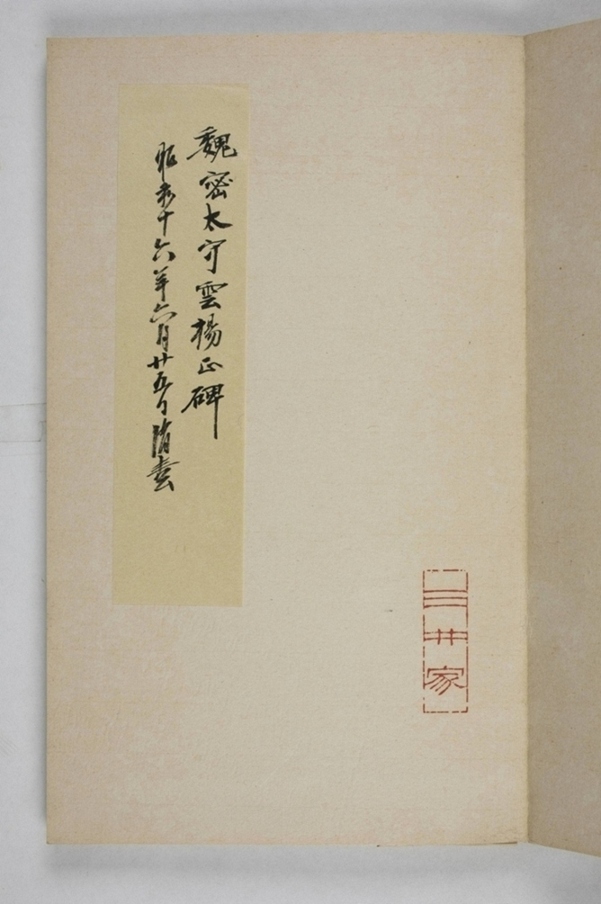 魏密太守雲楊正碑
昭和十六年六月廿五日清雲
三井家